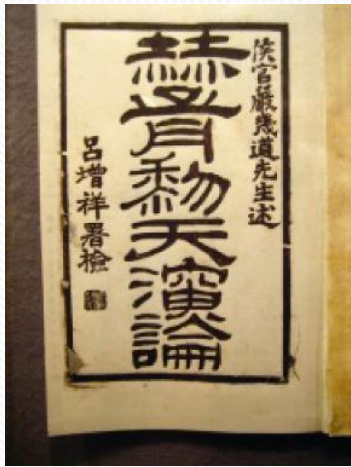 矦官嚴幾道先生述
赫胥黎天演論
呂增祥署檢